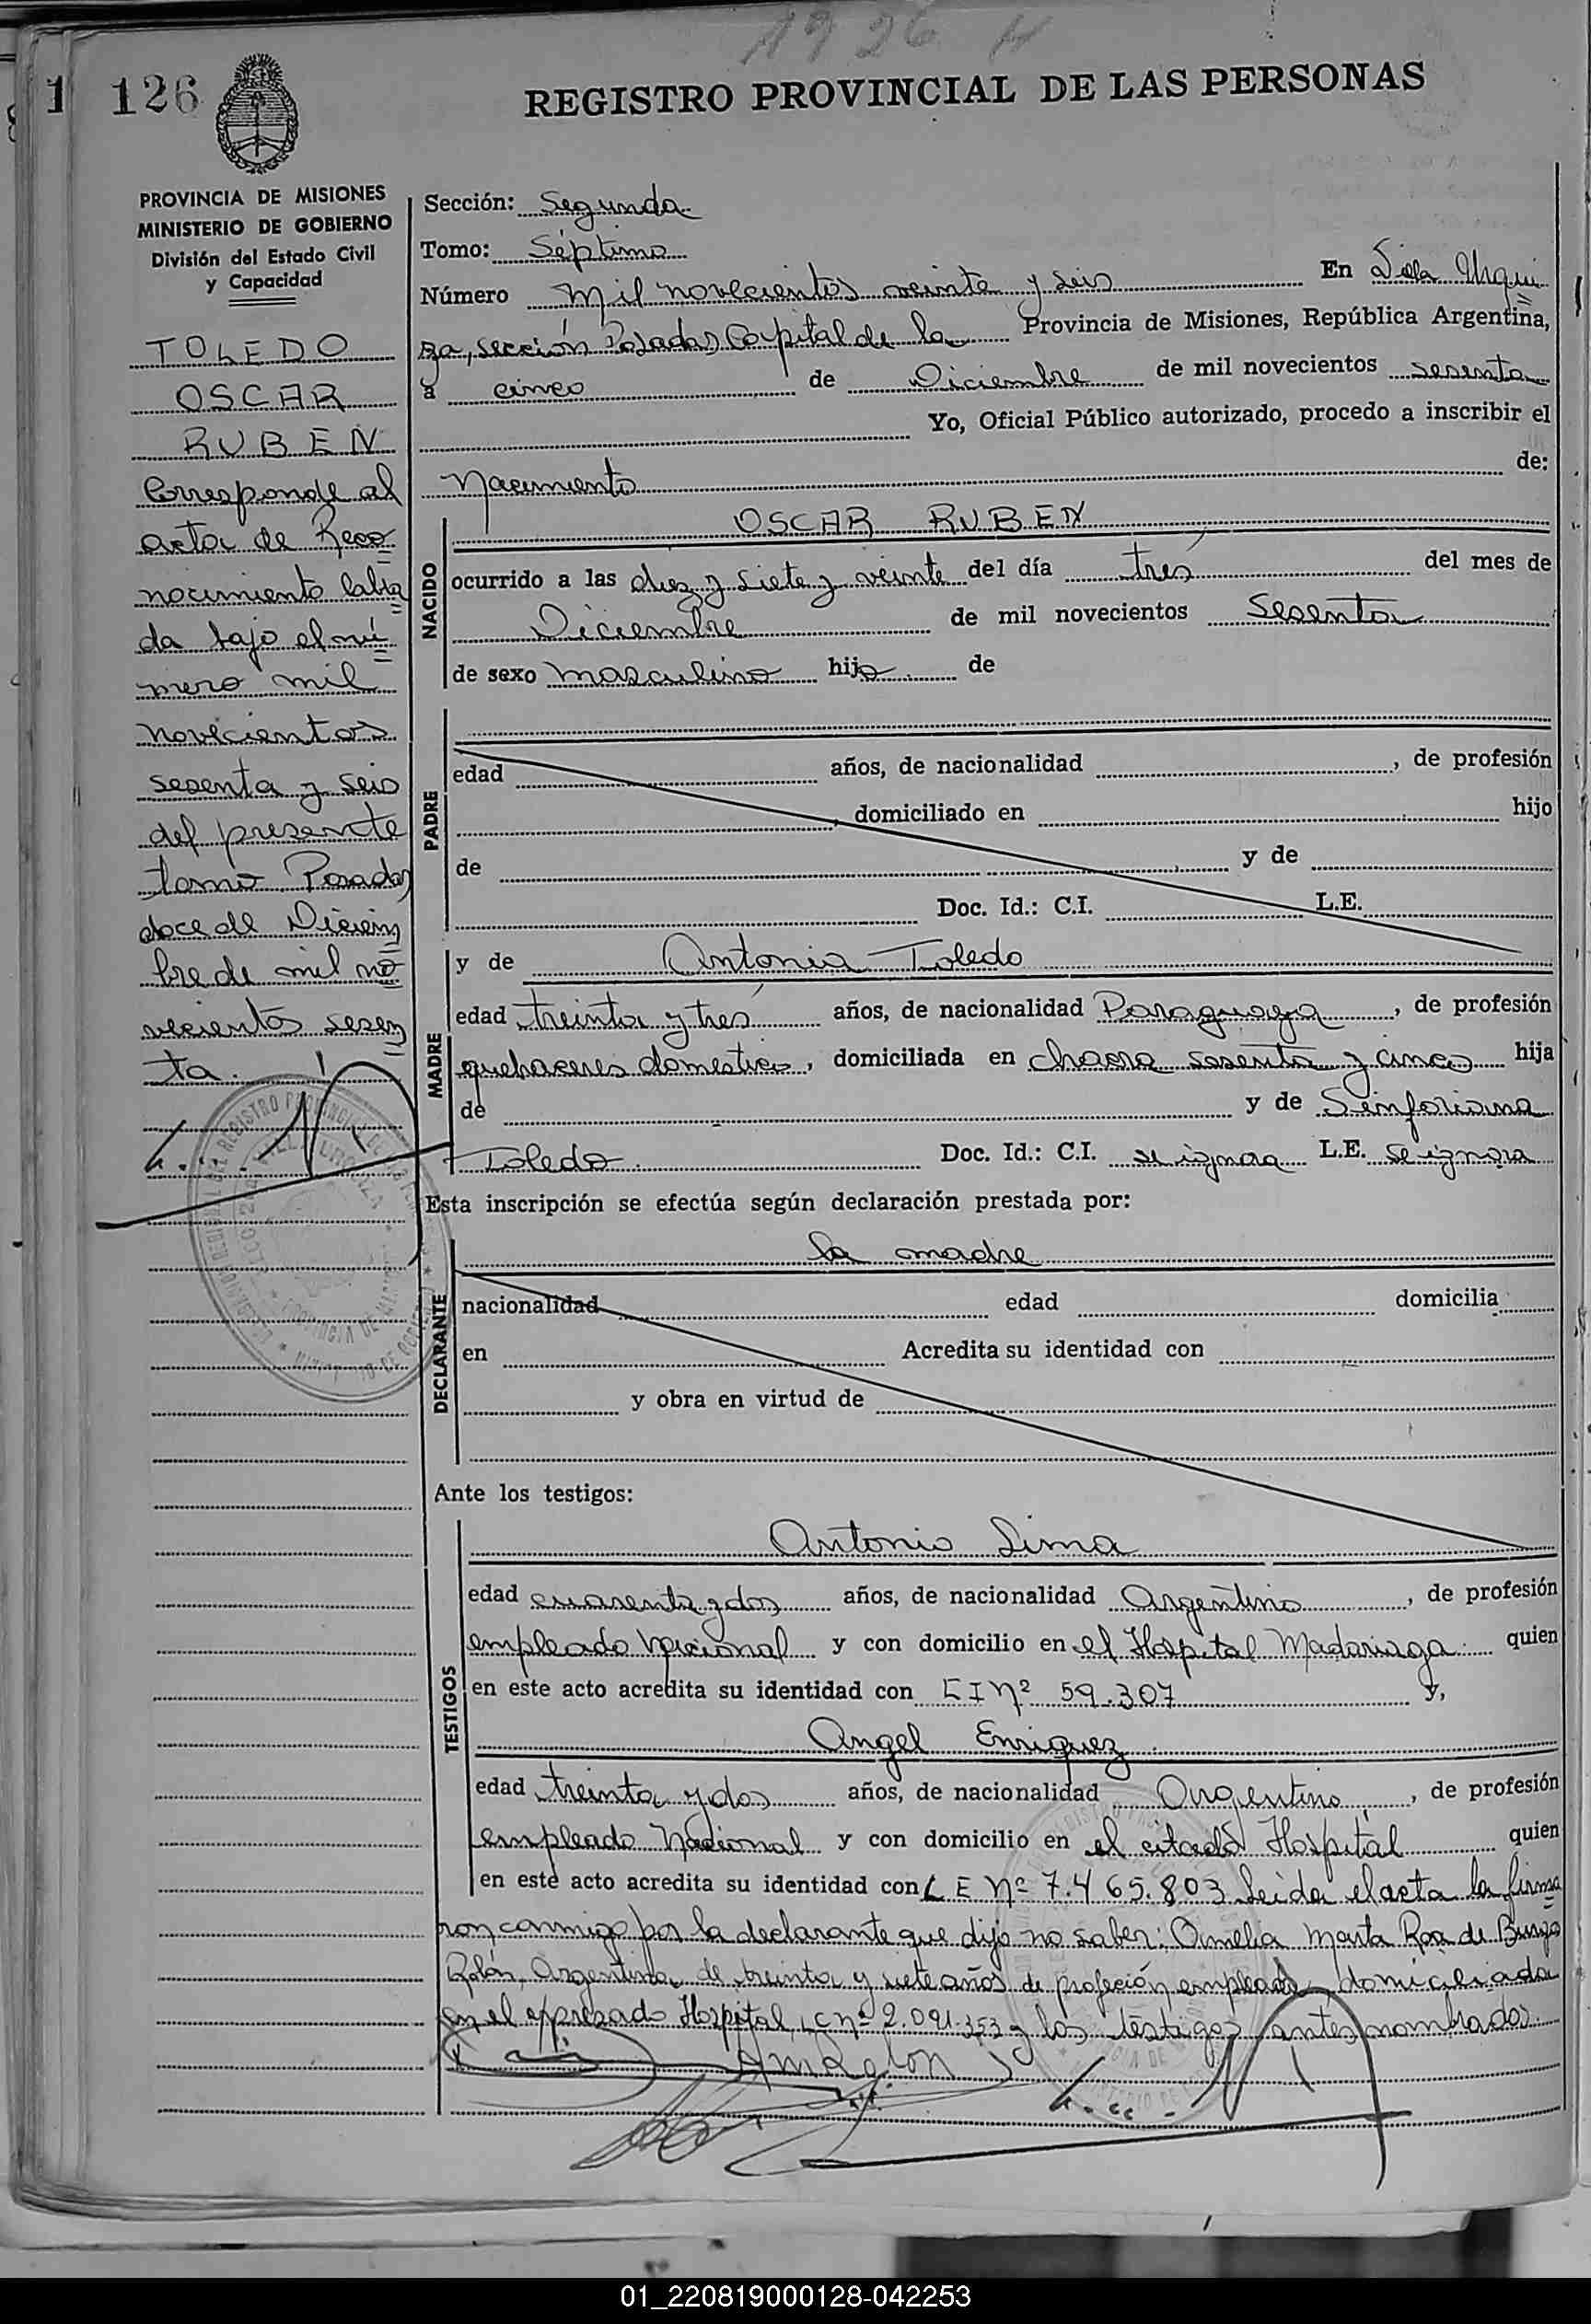 1926 N
1 126
REGISTRO PROVINCIAL DE LAS PERSONAS
PROVINCIA DE MISIONES
MINISTERIO DE GOBIERNO
División del Estado Civil
y Capacidad
TOLEDO
OSCAR
RUBEN
Corresponde al
acta de Reco
nocimiento labra
da bajo el nú
mero mil
novecientos
sesenta y seis
del presente
tomo Posadas
doce de Diciem
bre de mil no
vecientos sesen
ta.
Sección: Segunda
Tomo: Séptimo
Número mil novecientos veinte y seis En Villa Urqui
za, sección Posadas, Capital de la Provincia de Misiones, República Argentina,
a cinco de Diciembre de mil novecientos sesenta
Yo, Oficial Público autorizado, procedo a inscribir el
Nacimiento de:
NACIDO
OSCAR RUBEN
ocurrido a las diez y siete y veinte del día tres del mes de
Diciembre de mil novecientos Sesenta
de sexo masculino hijo de
PADRE
edad años, de nacionalidad , de profesión
, domiciliado en hijo
de y de
Doc. Id.: C.I. L.E.
MADRE
y de Antonia Toledo
edad treinta y tres años, de nacionalidad Paraguaya, de profesión
quehaceres domesticos, domiciliada en chacra sesenta y cinco hija
de y de Sinforiana
Toledo Doc. Id.: C.I. se ignora L.E. se ignora
Esta inscripción se efectúa según declaración prestada por:
DECLARANTE
la madre
nacionalidad edad domicilia
en Acredita su identidad con
y obra en virtud de
Ante los testigos:
TESTIGOS
Antonio Lima
edad cuarenta y dos años, de nacionalidad Argentino, de profesión
empleado Nacional y con domicilio en el Hospital Madariaga quien
en este acto acredita su identidad con C I Nº 59.307 y,
Angel Enriquez
edad treinta y dos años, de nacionalidad Argentino, de profesión
empleado Nacional y con domicilio en el citado Hospital quien
en este acto acredita su identidad con L E Nº 7.465.803 Leida el acta la firma
ron conmigo por la declarante que dijo no saber: Amelia Marta Roa de
Rolón, Argentina, de treinta y siete años de profeción empleada domiciliada
en el expresado Hospital, L C nº 2.091.353 y los testigos antes nombrados.
AMRolon
01_220819000128-042253